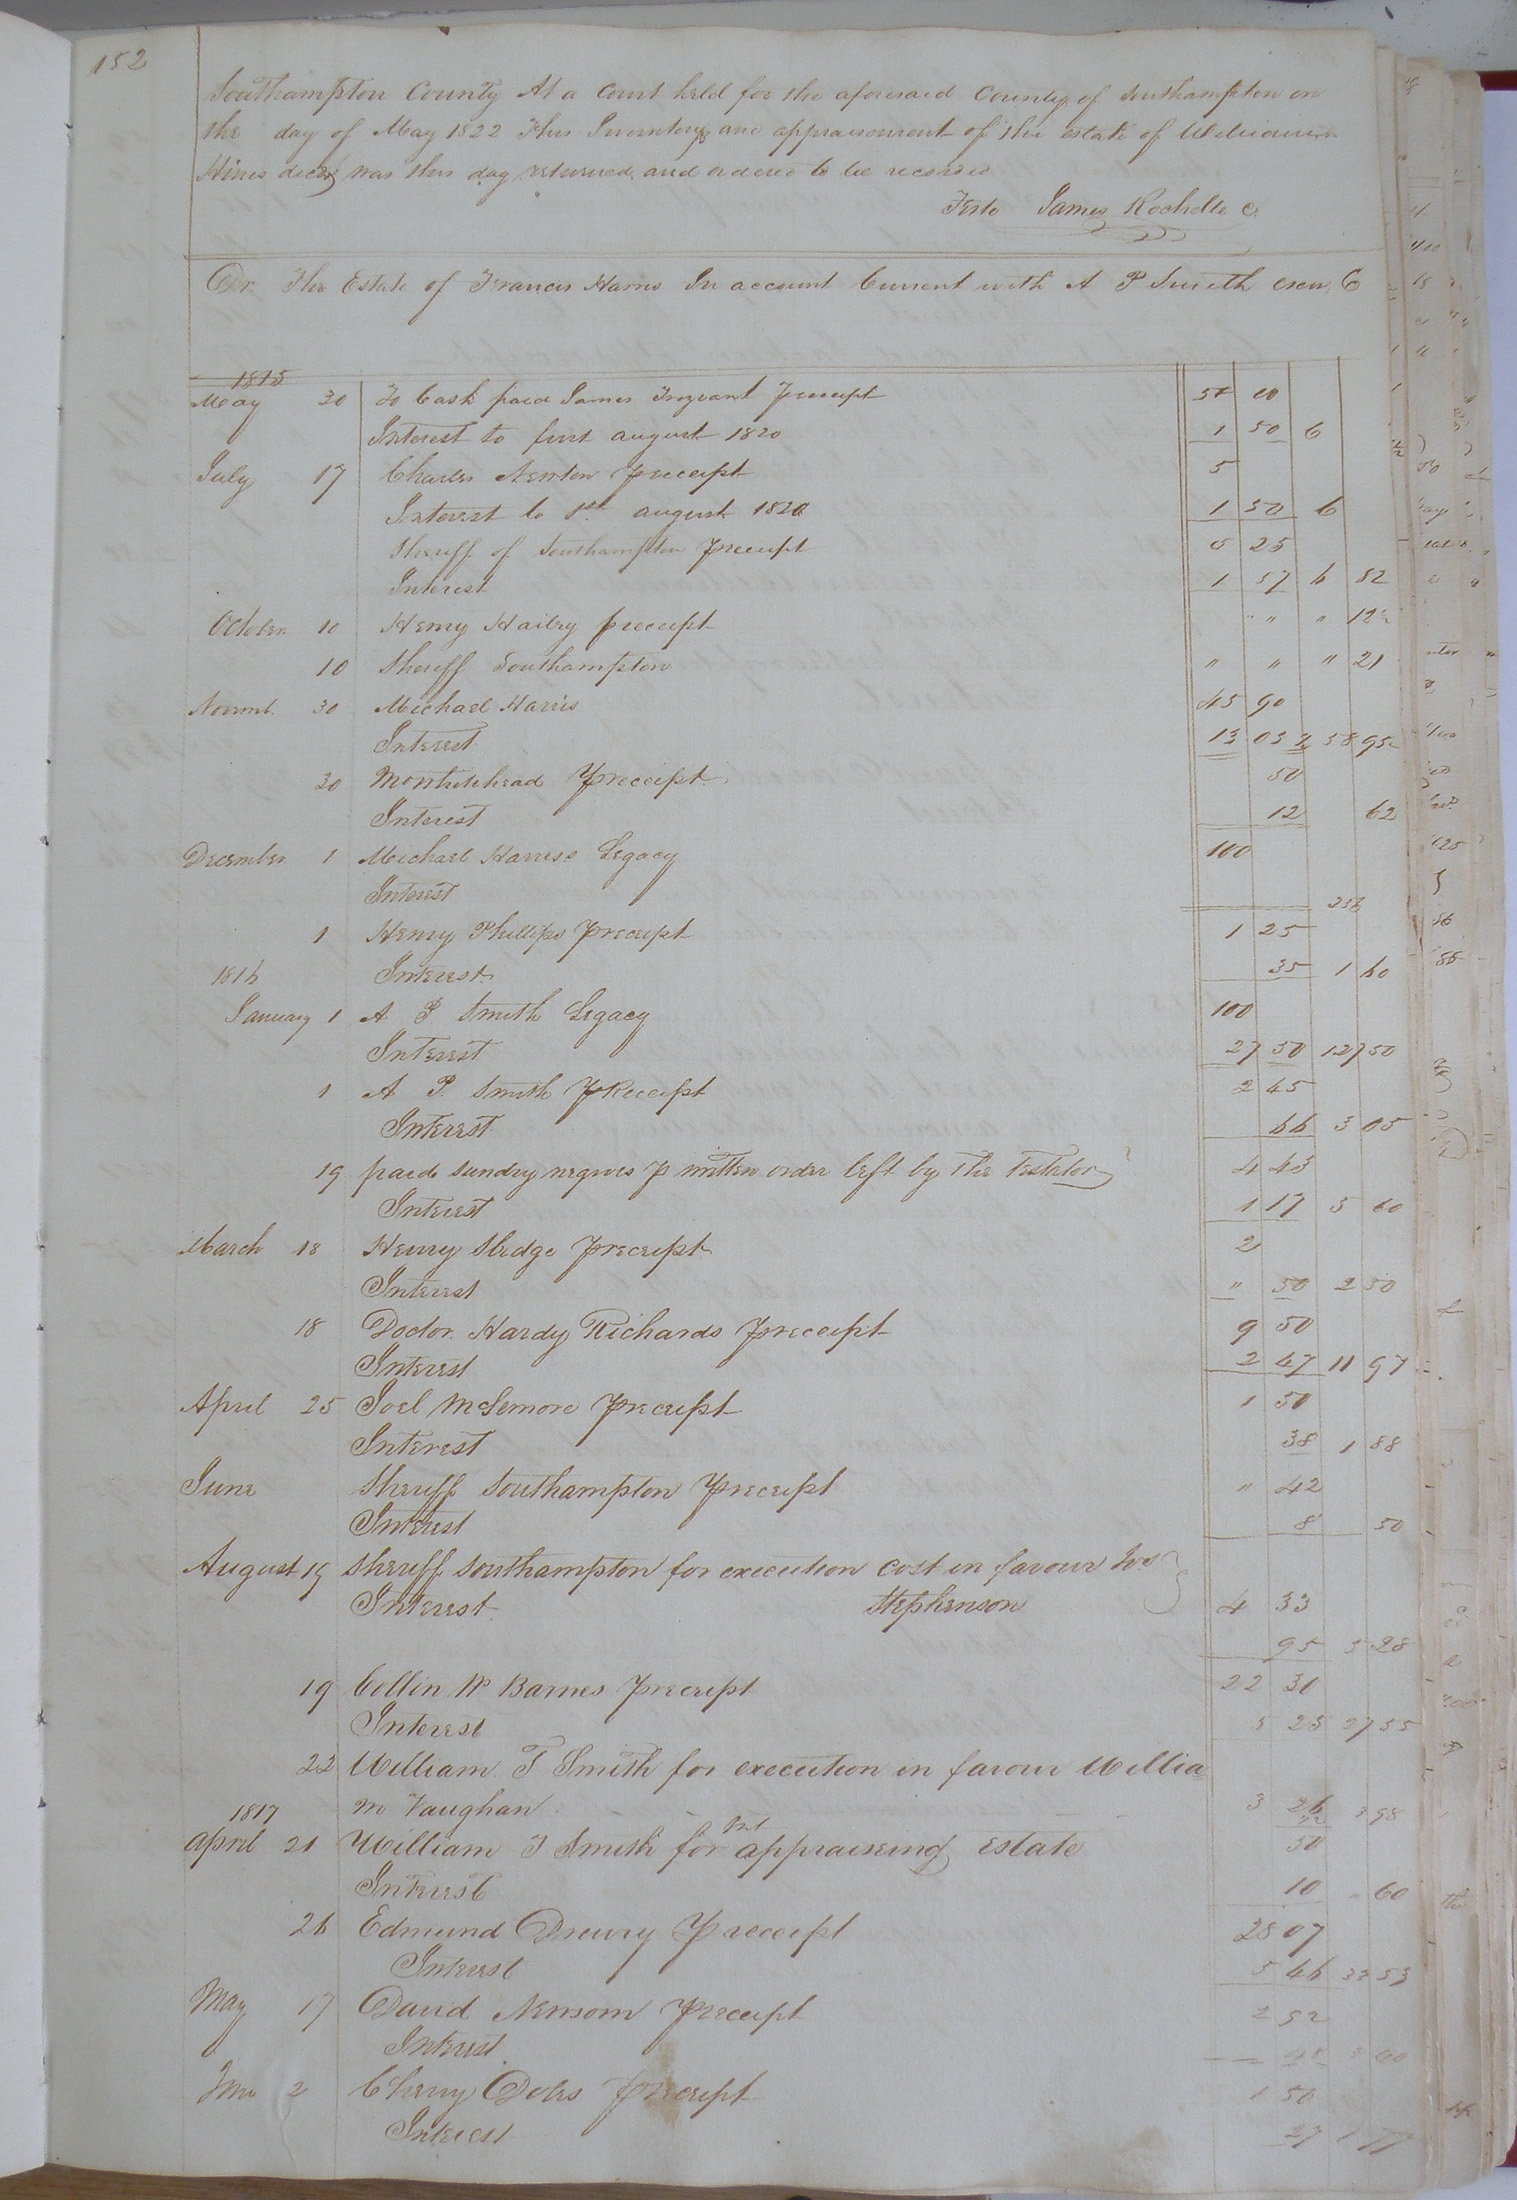 152
Southampton County At a Court held for the aforesaid County of Southampton on
the day of May 1822 This Inventory and appraisement of the estate of William
Hines decd was this day returned and ordered to be recorded
Teste James Rochelle C.
Dr. The Estate of Francis Harris In account Current with A P Smith exer C
1815
May 30 To Cash paid James preceipt 00
Interest to first august 1820 1 50 6
July 17 Charles Newton preceipt 5
Interest to 1st august 1820 1 50 6
Sheriff of Southampton preceipt 5 25
Interest 1 57 6 82
October 10 Henry Hailey preceipt " " 12½
10 Sheriff Southampton " " " 21
Novemb. 30 Michael Harris 45 90
Interest 13 03 ½ 58 93½
30 preceipt 50
Interest 12 62
December 1 Michael Harriss Legacy 100
Interest
1 Henry Phillips preceipt 1 25
1816 Interest 35 1 60
January 1 A P Smith Legacy 100
Interest 27 50 127 50
1 A P. Smith pReceipt 2 45
Interest 66 3 05
19 paid sundry negroes p written order left by the Testator 4 43
Interest 1 17 5 60
March 18 Henry Sledge preceipt 2
Interest " 50 2 50
18 Doctor Hardy Richards preceipt 9 50
Interest 2 47 11 97
April 25 Joel McLemore preceipt 1 50
Interest 38 1 88
June Sheriff Southampton preceipt " 42
Interest 8 50
August 19 Sheriff Southampton for execution cost in favour
Interest Stephenson 4 33
95 5 28
19 Collin W Barnes preceipt 22 30
Interest 5 25 27 55
22 William T Smith for execution in favour Willia
m Vaughan 3 26 3 98
1817
April 21 William T Smith for Int appraiseing estate 50
Interest 10 " 60
26 Edmund Drewry preceipt 28 07
Interest 5 46 33 53
May 17 David Newsom preceipt 2 52
Interest 48 3 00
June 2 Cherry Doles preceipt 1 50
Interest 27 1 77